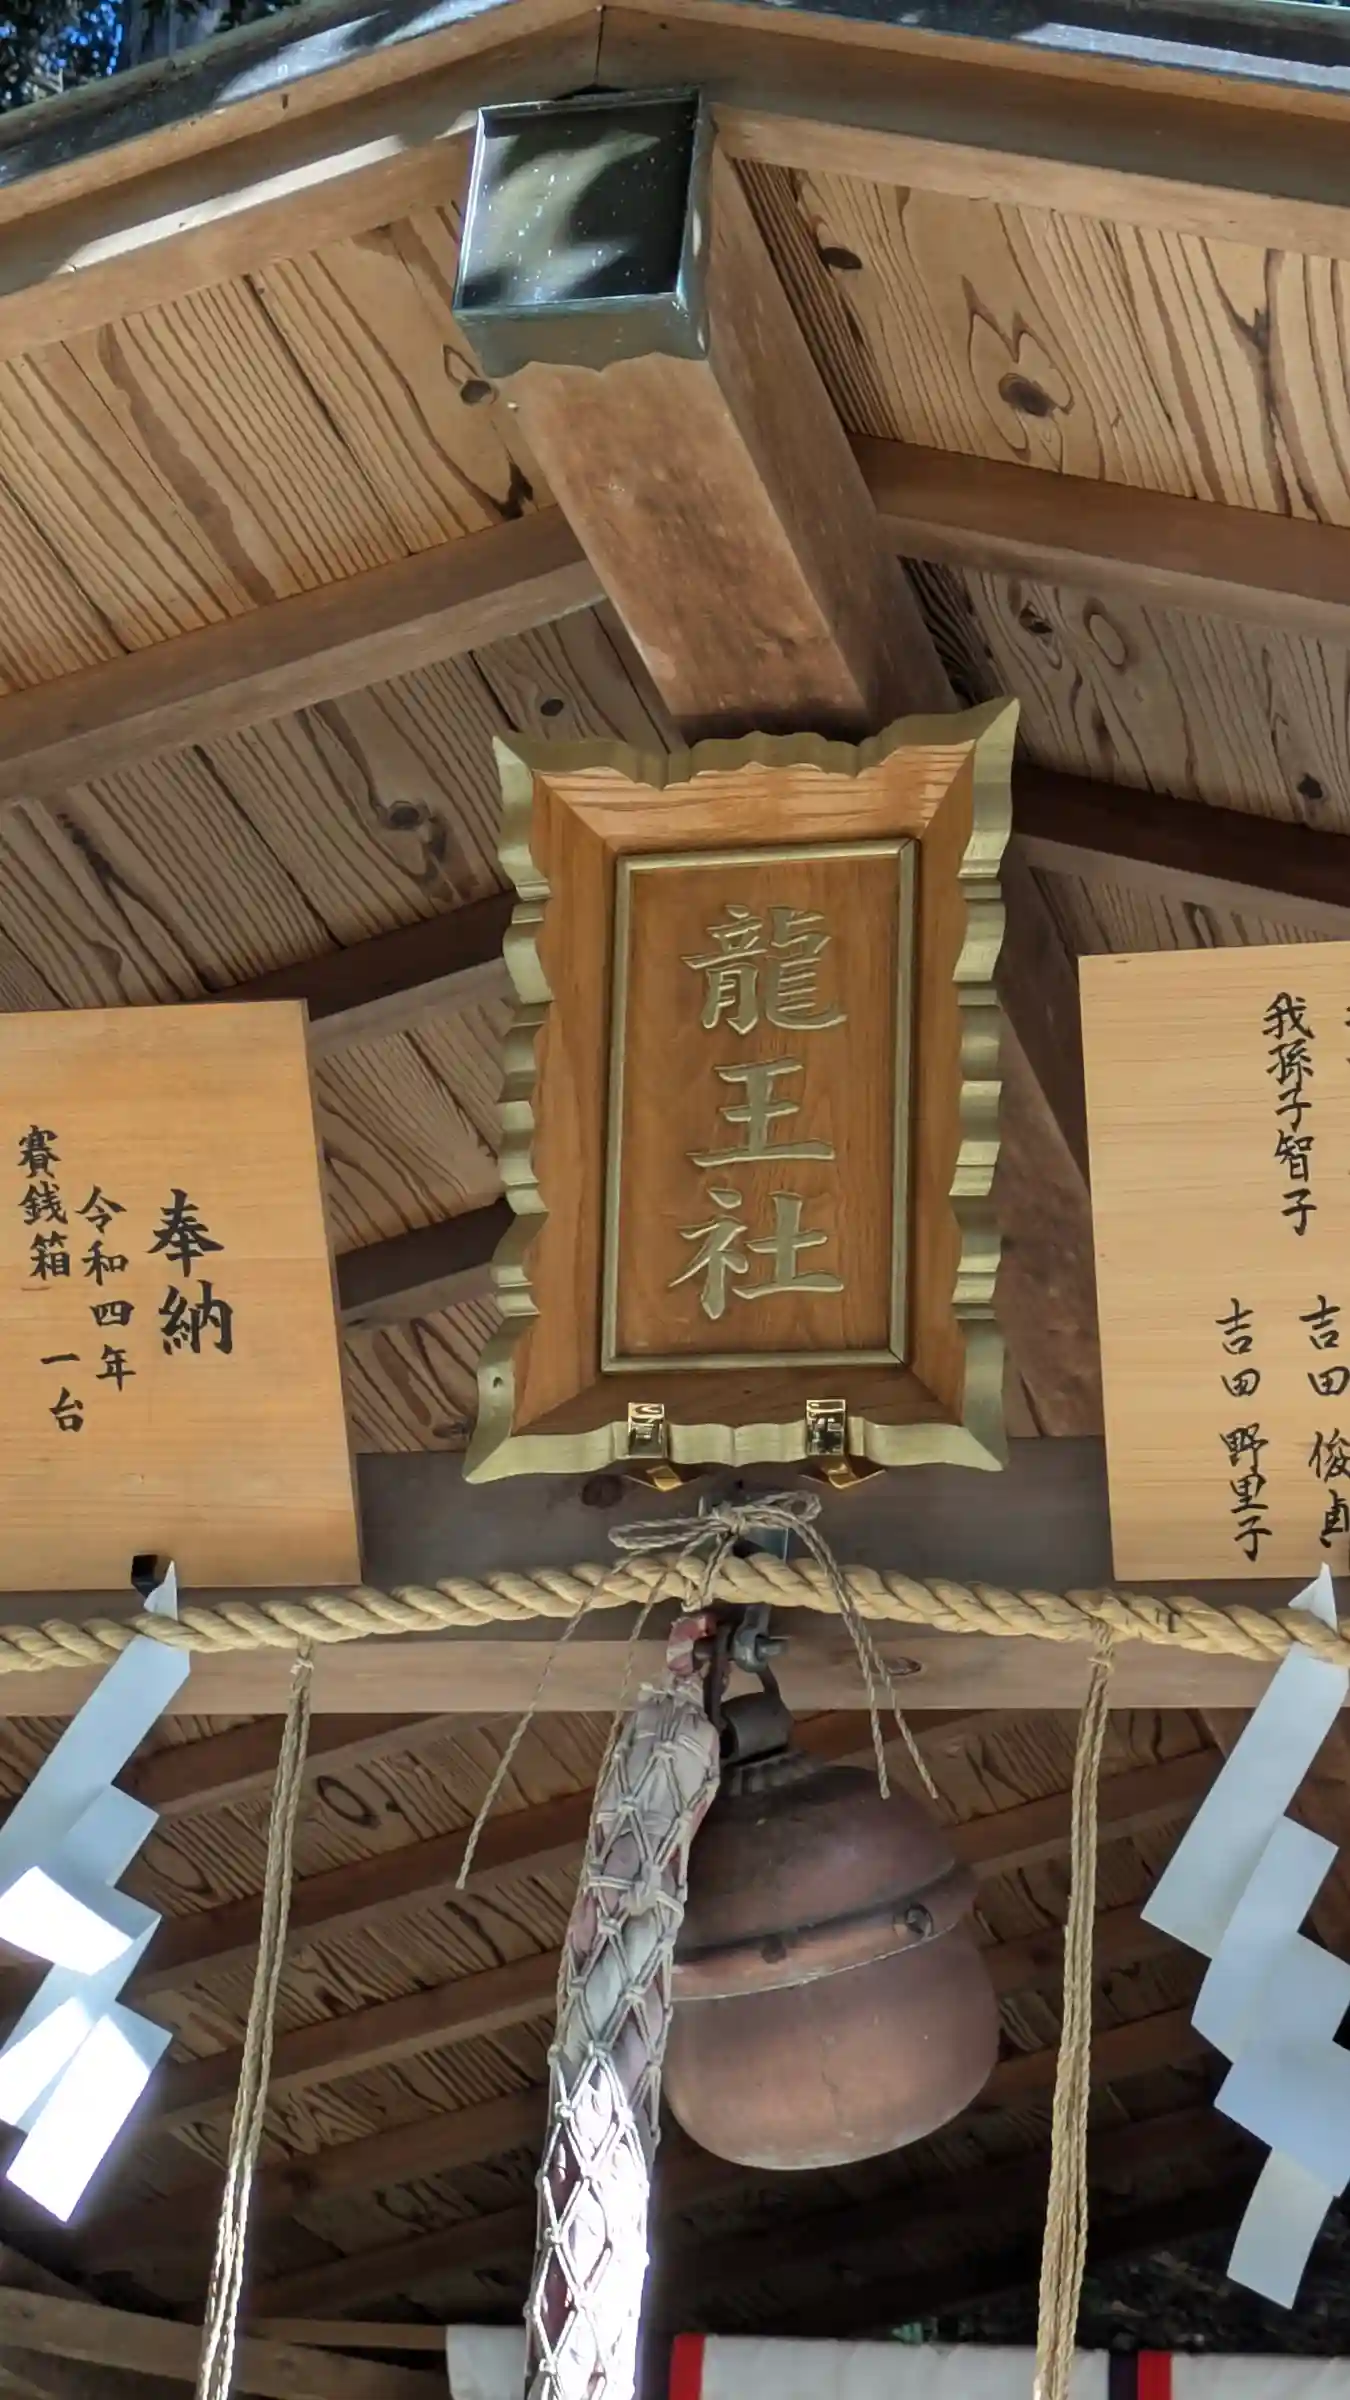 龍王社
奉納
令和四年
賽銭箱 一台
吉田 俊貞
我孫子智子
吉田 野里子